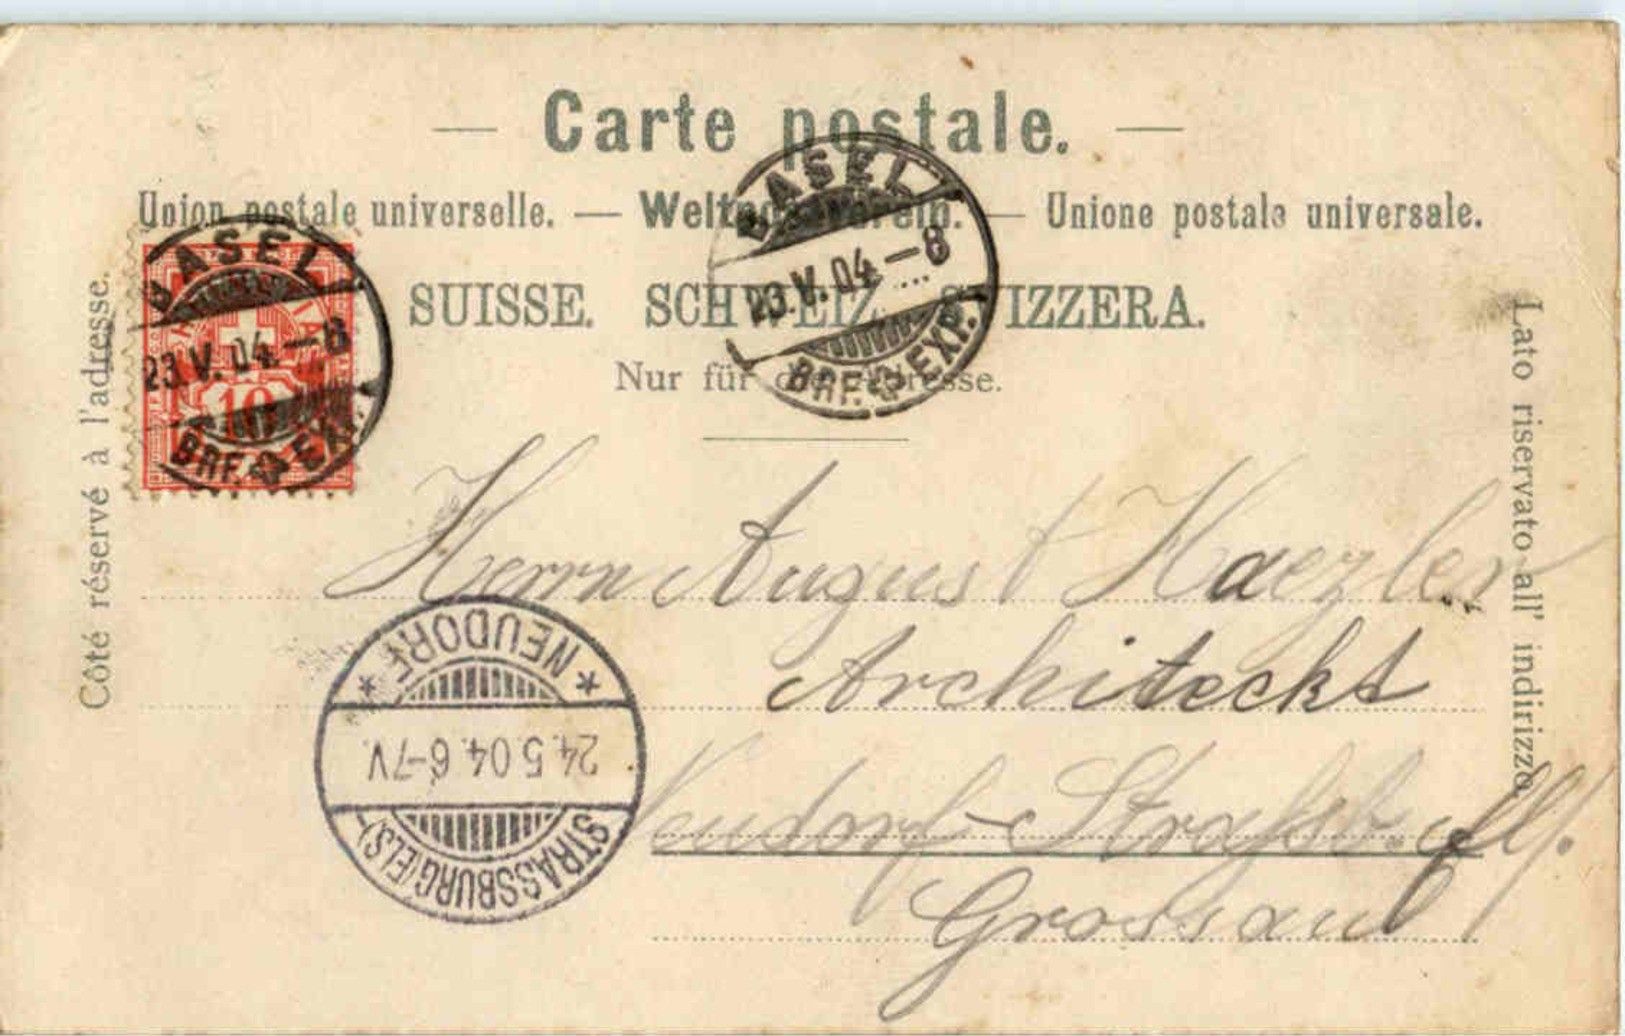 Carte postale.
Union postale universelle. — Weltpostverein. — Unione postale universale.
SUISSE. SCHWEIZ. SVIZZERA.
Nur für die Adresse.
Côté réservé à l'adresse.
Lato riservato all' indirizzo
BASEL
23.V.04.–8
BRF. EXP.
10
BASEL
23.V.04.–8
BRF. EXP.
Herrn August Haezler
Architeckt
Neudorf - Strassb. i/
Grossau
* NEUDORF *
24.5.04.6-7V.
STRASSBURG (ELS)